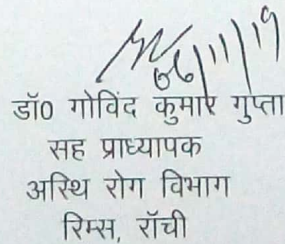 06/11/19
डॉ0 गोविंद कुमार गुप्ता
सह प्राध्यापक
अस्थि रोग विभाग
रिम्स, राँची